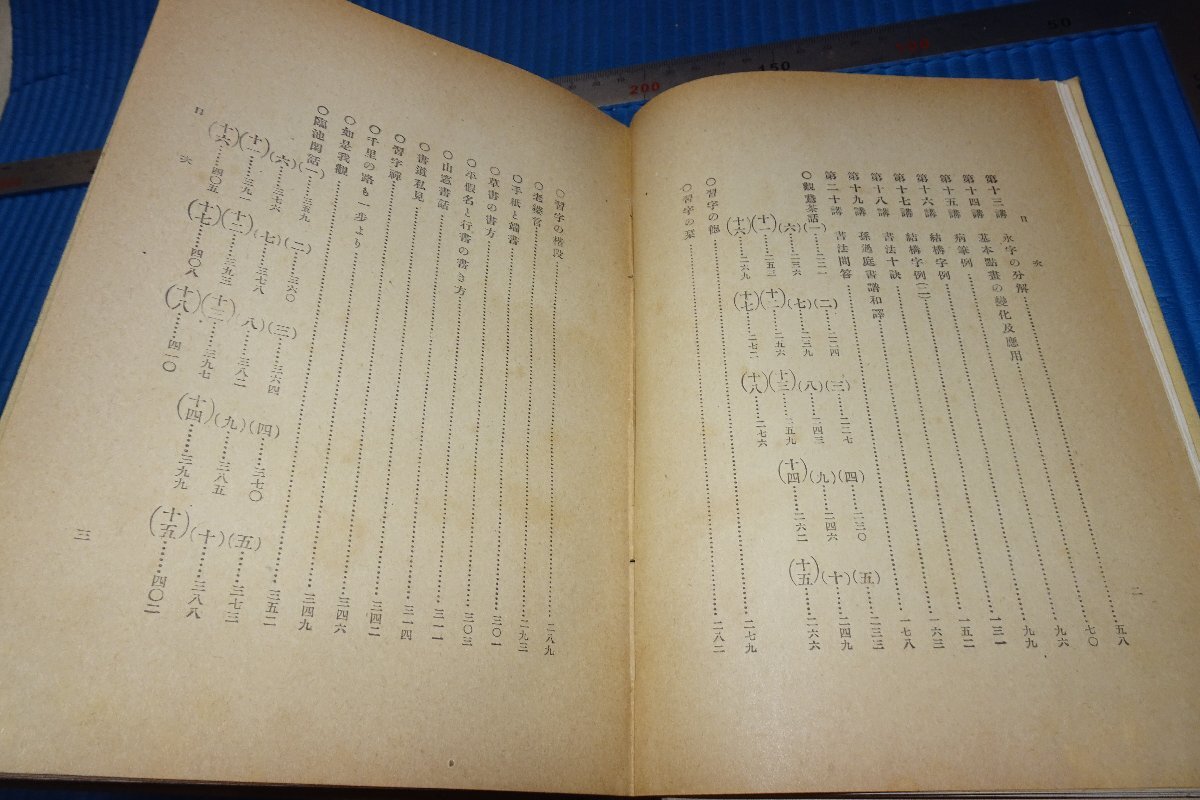 目次
二
第十三講 永字の分解……五八
第十四講 基本點畫の變化及應用……七〇
第十五講 病筆例……九六
第十六講 結構字例……九九
第十七講 結構字例(二)……一三一
第十八講 書法十訣……一五二
第十九講 孫過庭書譜和譯……一六三
第二十講 書法問答……一七八
〇觀鵞茶話(一)……二二一 (二)……二二四 (三)……二二七 (四)……二三〇 (五)……二三三
(六)……二三六 (七)……二三九 (八)……二四三 (九)……二四六 (十)……二四九
(十一)……二五三 (十二)……二五六 (十三)……二五九 (十四)……二六二 (十五)……二六六
(十六)……二六九 (十七)……二七二 (十八)……二七六
〇習字の德……二七九
〇習字の栞……二八二
〇習字の階段……二八九
〇……二九三
〇手紙と端書……三〇一
〇草書の書方……三〇三
〇平假名と行書の書き方……三一一
〇山窓書話……三一四
〇書道私見……三四二
〇習字禪……三四六
〇千里の路も一步より……三四九
〇如是我觀……三五二
〇臨池閑話(一)……三五九 (二)……三六〇 (三)……三六四 (四)……三七〇 (五)……三七三
(六)……三七六 (七)……三七八 (八)……三八二 (九)……三八五 (十)……三八八
(十一)……三九一 (十二)……三九三 (十三)……三九七 (十四)……三九九 (十五)……四〇二
(十六)……四〇五 (十七)……四〇八 (十八)……四一〇
目次
三
200
150
100
50